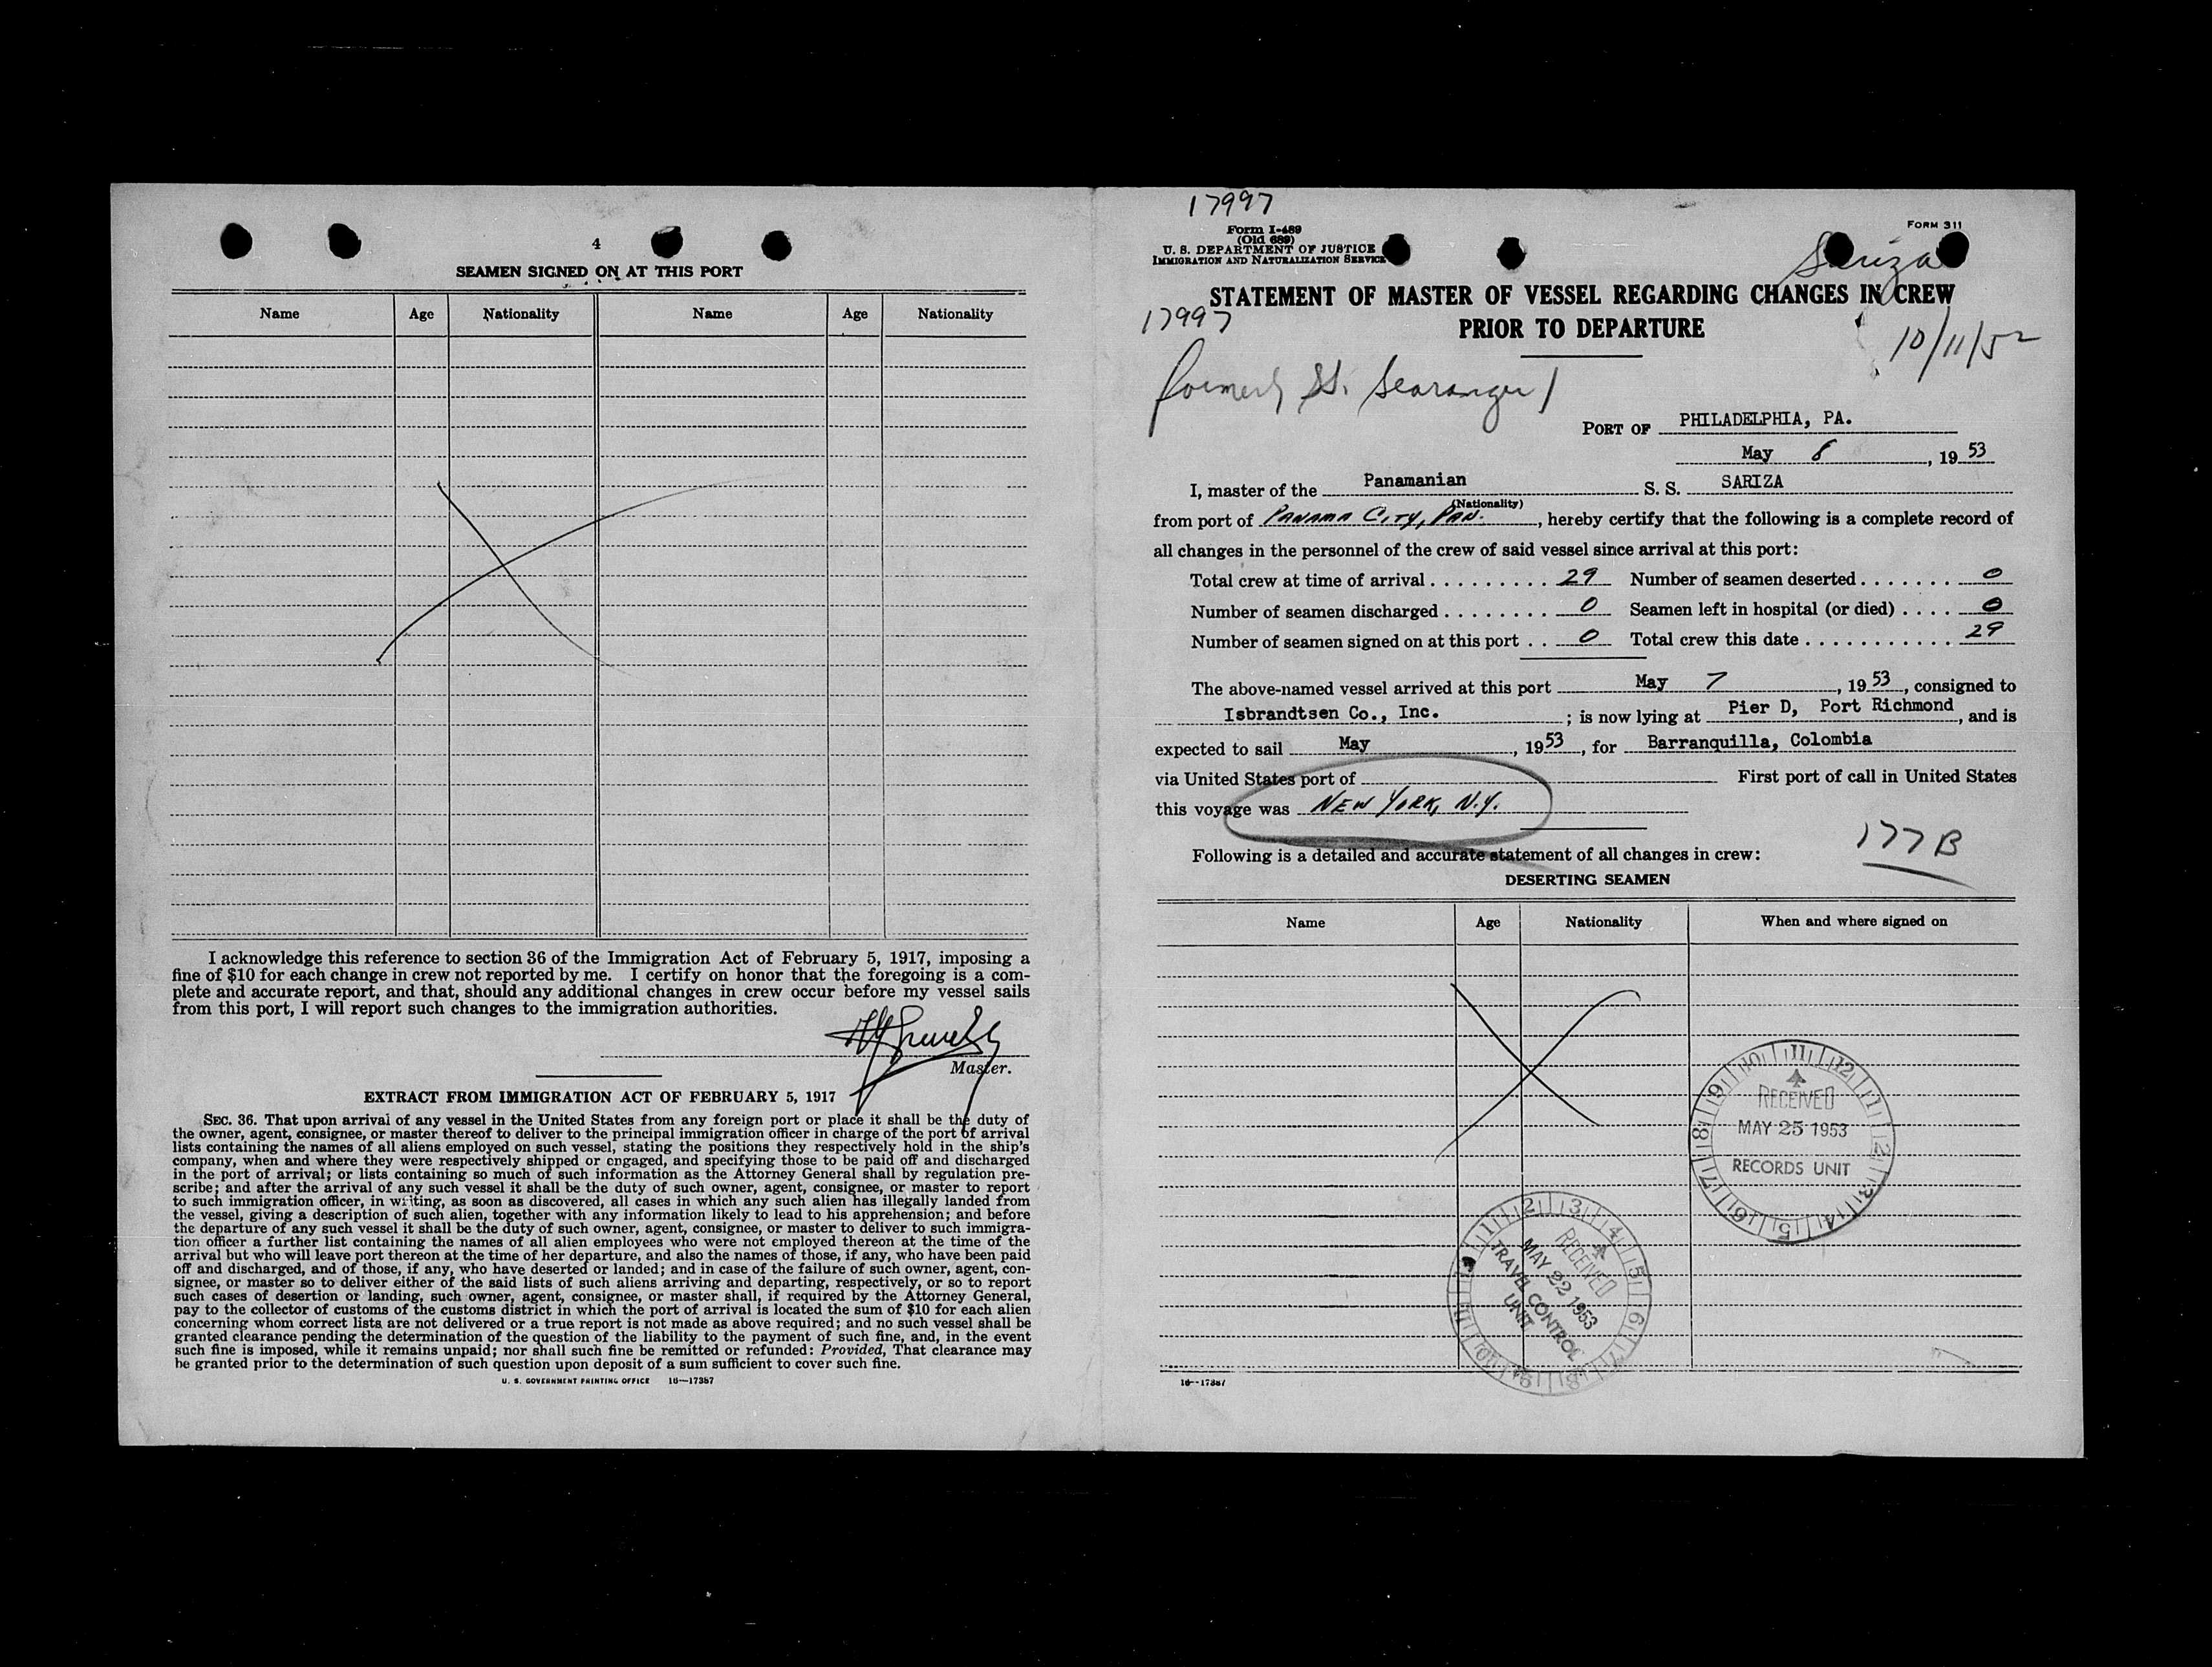 4
SEAMEN SIGNED ON AT THIS PORT
Name Age Nationality Name Age Nationality
I acknowledge this reference to section 36 of the Immigration Act of February 5, 1917, imposing a
fine of $10 for each change in crew not reported by me. I certify on honor that the foregoing is a com-
plete and accurate report, and that, should any additional changes in crew occur before my vessel sails
from this port, I will report such changes to the immigration authorities.
Master.
EXTRACT FROM IMMIGRATION ACT OF FEBRUARY 5, 1917
SEC. 36. That upon arrival of any vessel in the United States from any foreign port or place it shall be the duty of
the owner, agent, consignee, or master thereof to deliver to the principal immigration officer in charge of the port of arrival
lists containing the names of all aliens employed on such vessel, stating the positions they respectively hold in the ship's
company, when and where they were respectively shipped or engaged, and specifying those to be paid off and discharged
in the port of arrival; or lists containing so much of such information as the Attorney General shall by regulation pre-
scribe; and after the arrival of any such vessel it shall be the duty of such owner, agent, consignee, or master to report
to such immigration officer, in writing, as soon as discovered, all cases in which any such alien has illegally landed from
the vessel, giving a description of such alien, together with any information likely to lead to his apprehension; and before
the departure of any such vessel it shall be the duty of such owner, agent, consignee, or master to deliver to such immigra-
tion officer a further list containing the names of all alien employees who were not employed thereon at the time of the
arrival but who will leave port thereon at the time of her departure, and also the names of those, if any, who have been paid
off and discharged, and of those, if any, who have deserted or landed; and in case of the failure of such owner, agent, con-
signee, or master so to deliver either of the said lists of such aliens arriving and departing, respectively, or so to report
such cases of desertion or landing, such owner, agent, consignee, or master shall, if required by the Attorney General,
pay to the collector of customs of the customs district in which the port of arrival is located the sum of $10 for each alien
concerning whom correct lists are not delivered or a true report is not made as above required; and no such vessel shall be
granted clearance pending the determination of the question of the liability to the payment of such fine, and, in the event
such fine is imposed, while it remains unpaid; nor shall such fine be remitted or refunded: Provided, That clearance may
be granted prior to the determination of such question upon deposit of a sum sufficient to cover such fine.
U. S. GOVERNMENT PRINTING OFFICE 16—17387
17997
Form I-489
(Old 689)
U. S. DEPARTMENT OF JUSTICE
IMMIGRATION AND NATURALIZATION SERVICE
FORM 311
Sariza
STATEMENT OF MASTER OF VESSEL REGARDING CHANGES IN CREW
17997
PRIOR TO DEPARTURE
10/11/52
formerly SS. Searanger
PORT OF PHILADELPHIA, PA.
May 8, 1953
I, master of the Panamanian S. S. SARIZA
(Nationality)
from port of PANAMA CITY, PAN., hereby certify that the following is a complete record of
all changes in the personnel of the crew of said vessel since arrival at this port:
Total crew at time of arrival . . . . . . . . . 29 Number of seamen deserted . . . . . . . 0
Number of seamen discharged . . . . . . . . 0 Seamen left in hospital (or died) . . . . 0
Number of seamen signed on at this port . . 0 Total crew this date . . . . . . . . . . . . 29
The above-named vessel arrived at this port May 7, 1953, consigned to
Isbrandtsen Co., Inc. ; is now lying at Pier D, Port Richmond, and is
expected to sail May, 1953, for Barranquilla, Colombia
via United States port of First port of call in United States
this voyage was NEW YORK, N.Y.
177B
Following is a detailed and accurate statement of all changes in crew:
DESERTING SEAMEN
Name Age Nationality When and where signed on
10 11 12 1 2 3 4 5 6 7 8 9
RECEIVED
MAY 25 1953
RECORDS UNIT
1 2 3 4 5 6 7 8 9 10 11
RECEIVED
MAY 22 1953
TRAVEL CONTROL
UNIT
16—17387